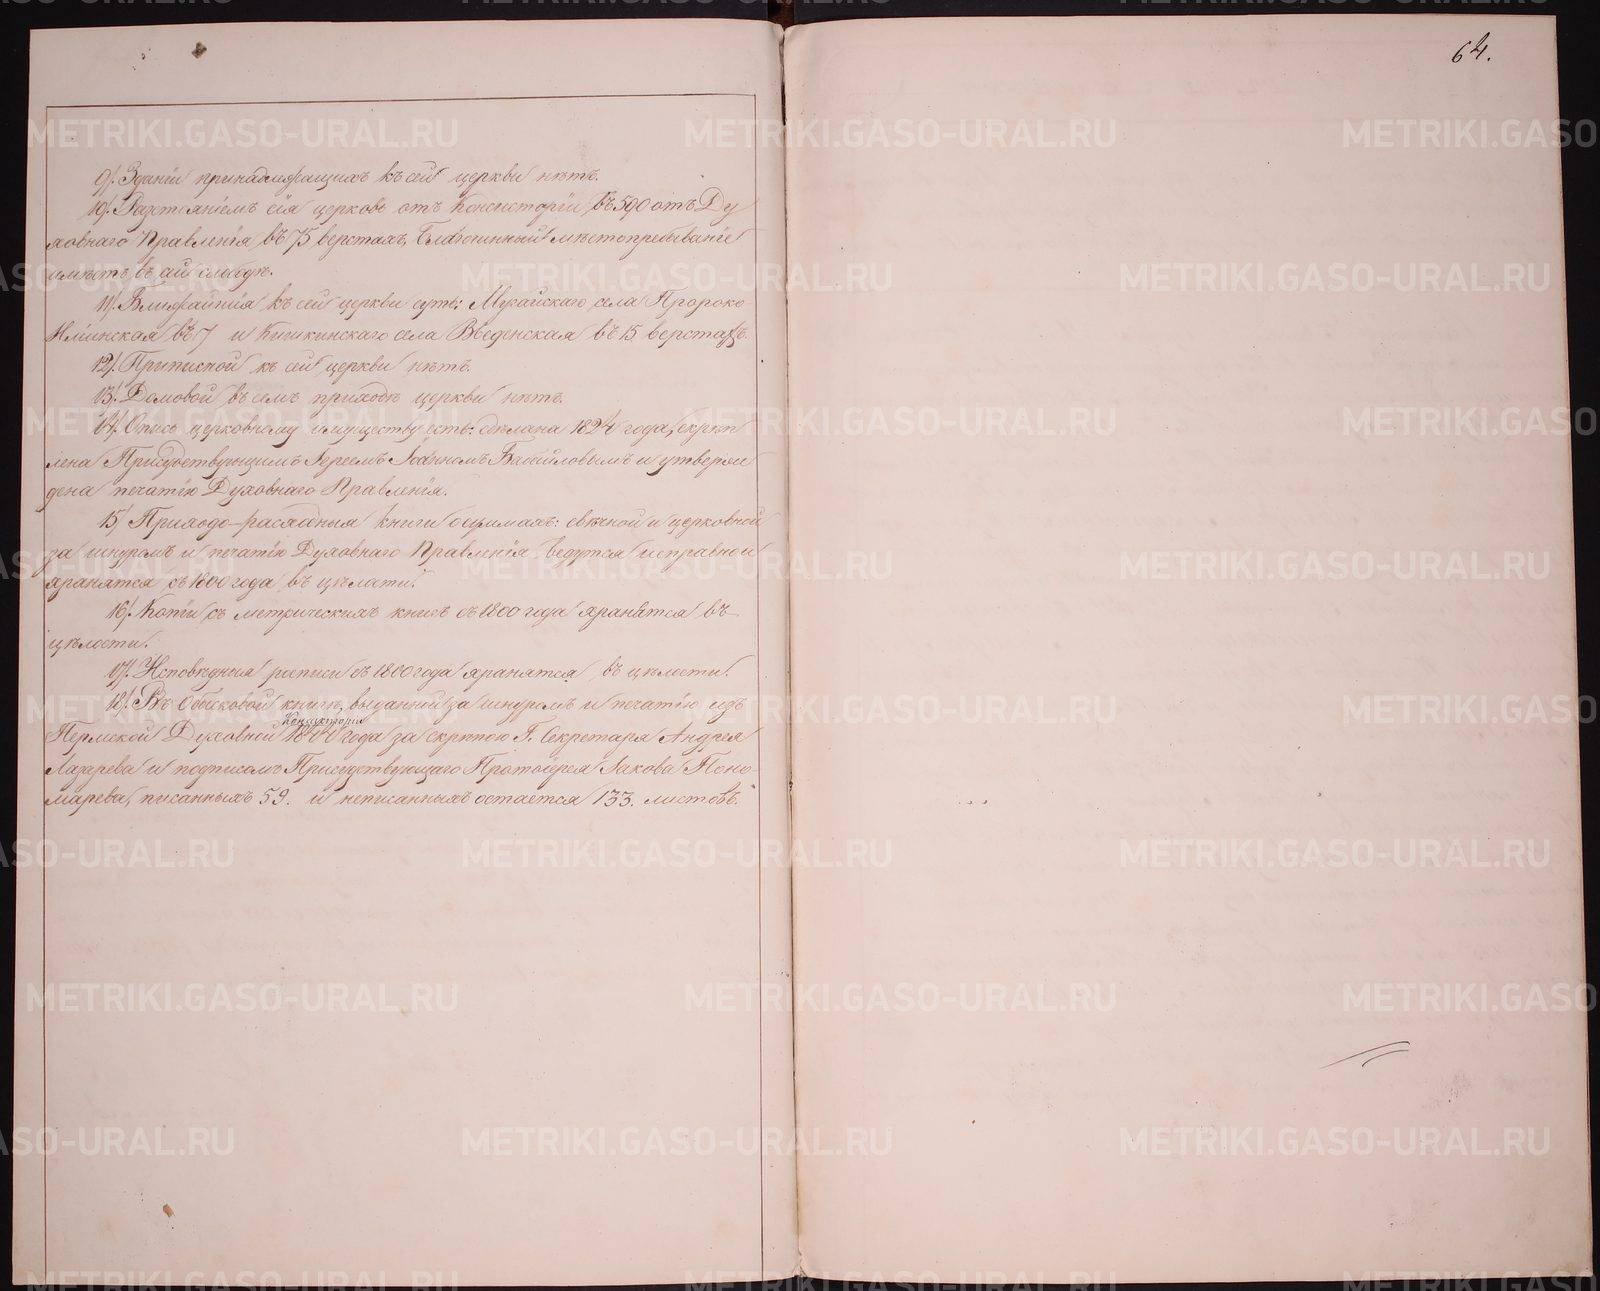 64.
9/. Зданіи принадлежащихъ къ сей церкви нѣтъ.
10/. Разстояніемъ сія церковь отъ Консисторіи въ 590 отъ Ду
ховнаго Правленія въ 75 верстахъ, Благочинный мѣстопребываніе
имѣетъ въ слободѣ.
11/. Ближайшія къ сей церкви суть: Мугайскаго села Пророко-
Ильинская въ 17 и Кишкинскаго села Введенская въ 15 верстахъ.
12/. Приписной къ сей церкви нѣтъ.
13/. Домовой въ семъ приходѣ церкви нѣтъ.
14/. Опись церковному имуществу есть: сдѣлана 1824 года, скрѣп
лена Присудствующимъ Іереемъ Іоанномъ и утверж
дена печатію Духовнаго Правленія.
15/. Приходо-расходныя книги о суммахъ: свѣчной и церковной
за шнуромъ и печатію Духовнаго Правленія ведутся исправно и
хранятся съ 1800 года въ цѣлости.
16/. Копіи съ метрическихъ книгъ съ 1800 года хранятся въ
цѣлости.
17/. Исповѣдныя росписи съ 1800 года хранятся въ цѣлости.
18/. Въ Обысковой книгѣ, выданной за шнуромъ и печатію изъ
Консисторіи
Пермской Духовной года за скрѣпою Г. Секретаря Андрея
Лазарева и подписомъ Присудствующаго Протоіерея Іакова Поно-
марева, писанныхъ 59. и неписанныхъ остается 133. листовъ.
METRIKI.GASO-URAL.RU